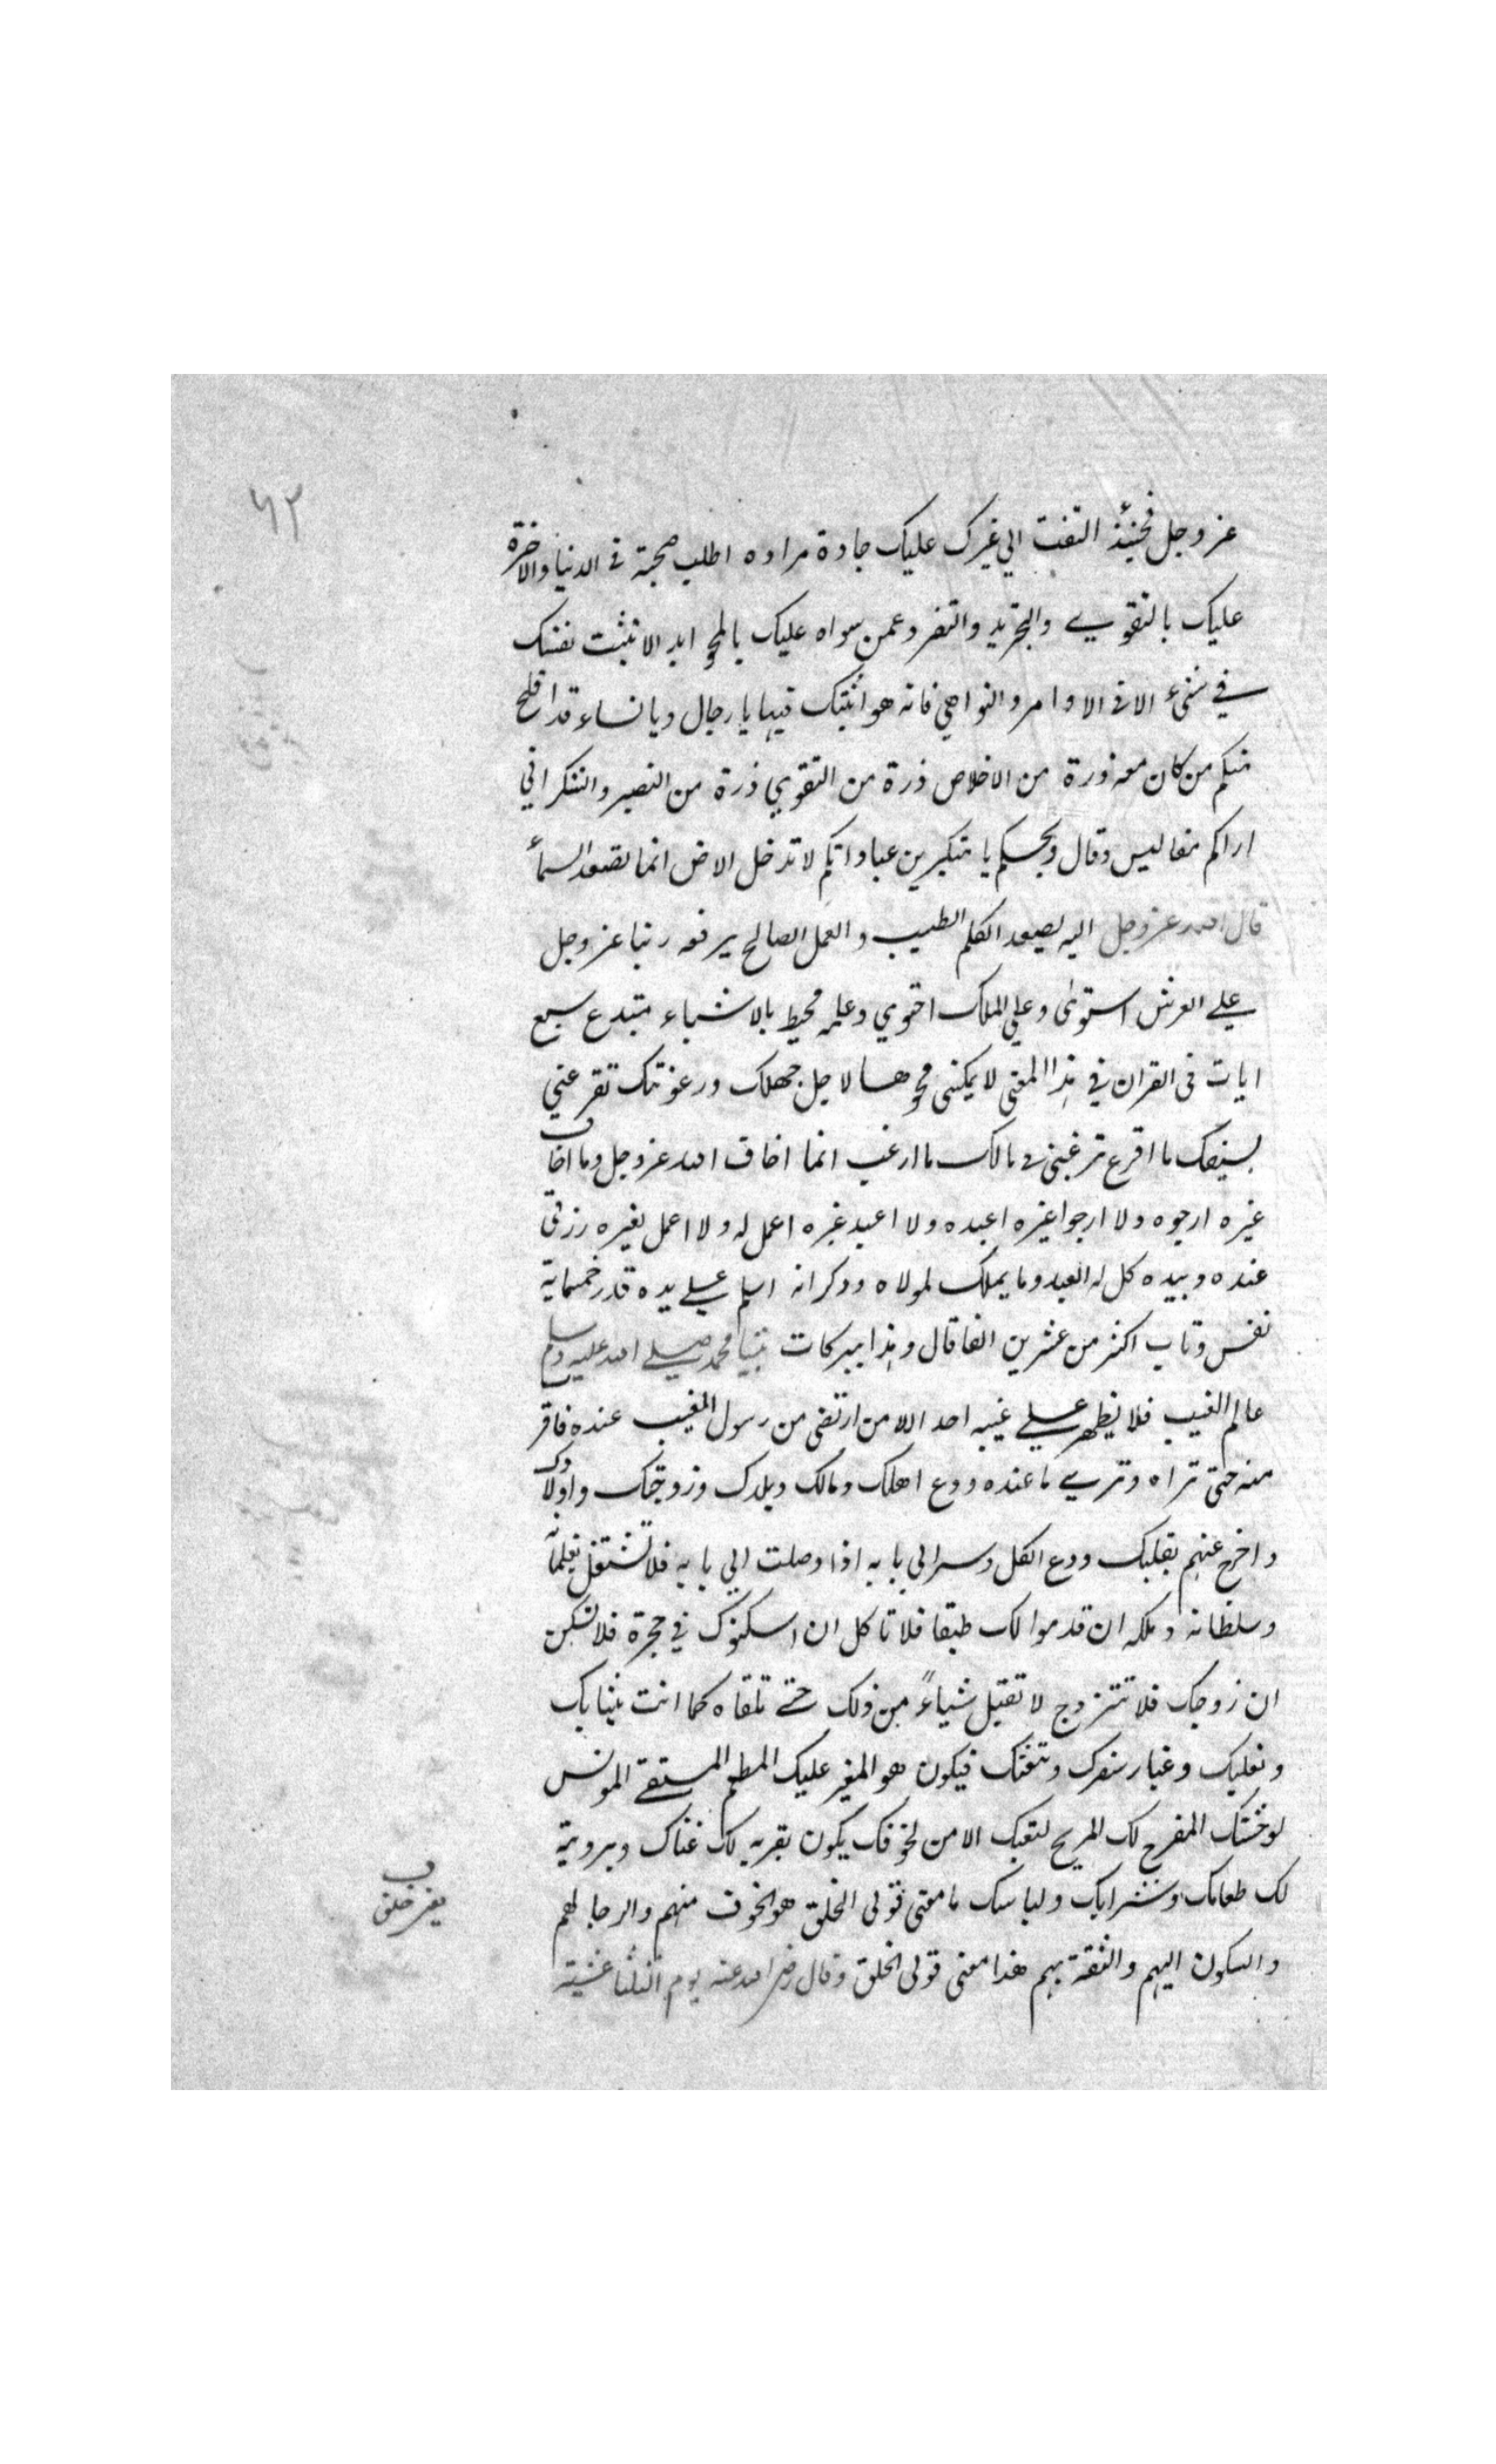 ٦٢
عز وجل فحينئذ التفت الي غيرك عليك جادة مراده اطلب صحبته فى الدنيا والاخرة
عليك بالتقوي والتجريد والتفرد عمن سواه عليك بالمحو ابدا لا تثبت نفسك
في شىء الا فى الاوامر والنواهي فانه هو اثبتك فيها يا رجال ويا نساء قد افلح
منكم من كان معه ذرة من الاخلاص ذرة من التقوي ذرة من الصبر والشكر اني
اراكم مفاليس وقال ويحكم يا متكبرين عباداتكم لا تدخل الارض انما تصعد السمأ
قال الله عز وجل اليه يصعد الكلم الطيب والعمل الصالح يرفعه ربنا عز وجل
علي العرش استوى وعلي الملك احتوي وعلمه محيط بالاشياء مبتدع سبع
ايات فى القران في هذا المعنى لا يمكننى محوها لاجل جهلك ورعونتك تفزعني
بسيفك ما افزع ترغبني فى مالك ما ارغب انما اخاف الله عز وجل وما اخاف
غيره ارجوه ولا ارجوا غيره اعبده ولا اعبد غيره اعمل له ولا اعمل لغيره رزقى
عنده وبيده كل له العبد وما يملك لمولاه وذكر انه اسلم علي يده قدر خمسماية
نفس وتاب اكثر من عشرين الفا قال وهذا ببركات نبينا محمد صلي الله عليه وسلم
عالم الغيب فلا يظهر علي غيبه احد الا من ارتضى من رسول الغيب عنده فاقر
منه حتى تراه وتري ما عنده ودع اهلك ومالك وبلدك وزوجتك واولادك
واخرج عنهم بقلبك ودع الكل وسر الي بابه اذا وصلت الي بابه فلا تشتغل بغلمانه
وسلطانه وملكه ان قدموا لك طبقا فلا تاكل ان اسكنوك في حجرة فلا تسكن
ان زوجك فلا تتزوج لا تقبل شياءً من ذلك حتي تلقاه كما انت بثيابك
ونعليك وغبار سفرك وشعثك فيكون هو المغير عليك المطعم المسقي المونس
لوحشتك المفرح لك المريح لتعبك الامن لخوفك يكون بقربه لك غناك وبرويته
لك طعامك وشرابك ولباسك ما معنى تولى الخلق هو الخوف منهم والرجا لهم
والسكون اليهم والثقة بهم هذا معنى تولى الخلق وقال رضي الله عنه يوم الثلثا عشية